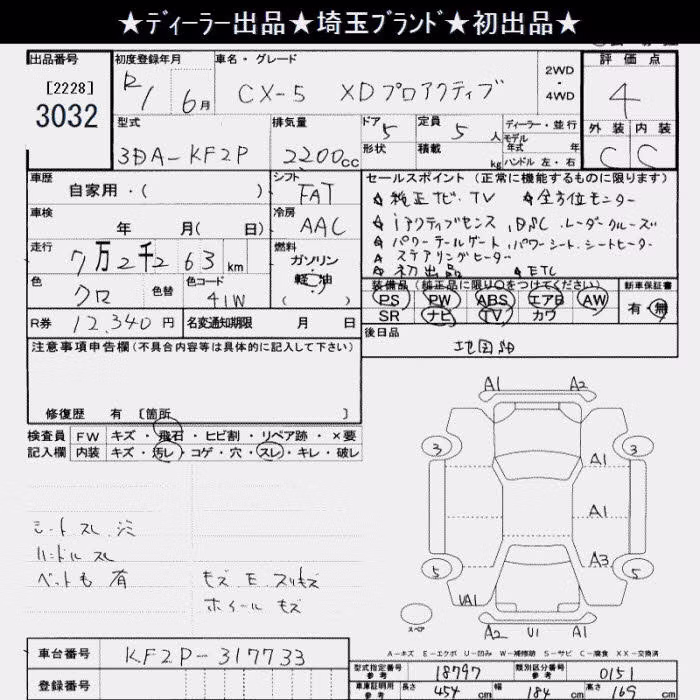 ★ディーラー出品★埼玉ブランド★初出品★
出品番号 初度登録年月 車名・グレード 2WD ・ 4WD 評価点
[2228]
3032
R/1 6月 CX-5 XDプロアクティブ 4
型式 排気量 ドア 5 定員 5人 ディーラー・並行 外装 内装
3DA-KF2P 2200cc 形状 積載 kg モデル年式 年 ハンドル 左・右 C C
車歴 シフト セールスポイント (正常に機能するものに限ります)
自家用・( ) FAT ☆純正ナビ、TV ☆全方位モニター
車検 冷房 ☆iアクティブセンス、BSC、レーダークルーズ
年 月( 日) AAC ☆パワーテールゲート、パワーシート、シートヒーター
走行 燃料 ☆ステアリングヒーター
7万2千263km ガソリン ☆初出品 ☆ETC
色 色替 色コード 軽・油 装備品(純正品に限り○をつけてください) 新車保証書
クロ 41W ( ) PS PW ABS エアB AW 有・無
SR ナビ TV カワ
R券 12,340円 名変通知期限 月 日 後日品
注意事項申告欄(不具合内容等は具体的に記入して下さい) 地図SD
修復歴 有 [箇所 ]
検査員 FW キズ・飛石・ヒビ割・リペア跡・×要
記入欄 内装 キズ・汚レ・コゲ・穴・スレ・キレ・破レ
A1 A2
3 3
A1
A1
シートスレ、シミ
ハンドルスレ
A3
ペットも 有 モズ E スリキズ
5 5
ホイール キズ
UA1
スペア A2 U1 A1
A-キズ E-エクボ U-凹み W-補修跡 S-サビ C-腐食 XX-交換済
車台番号 KF2P-317733
型式指定番号参考 18797 類別区分番号参考 0151
登録番号
車庫証明用参考 長さ 454cm 幅 184cm 高さ 169cm